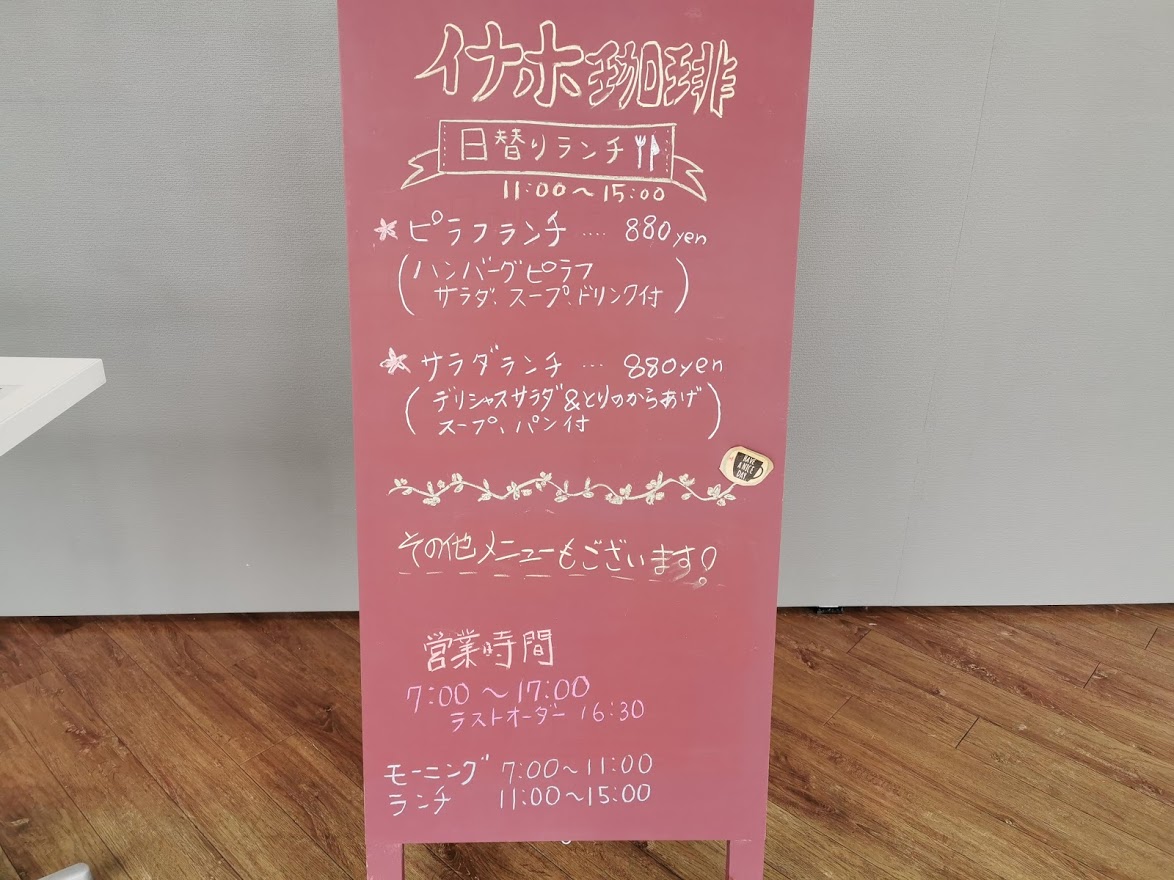 イナホ珈琲
日替りランチ
11:00～15:00
ピラフランチ ···· 880yen
(ハンバーグピラフ
サラダ、スープ、ドリンク付)
サラダランチ ··· 880yen
(デリシャスサラダ&とりのからあげ
スープ、パン付)
HAVE
A NICE
DAY
その他メニューもございます!
営業時間
7:00～17:00
ラストオーダー 16:30
モーニング 7:00～11:00
ランチ 11:00～15:00